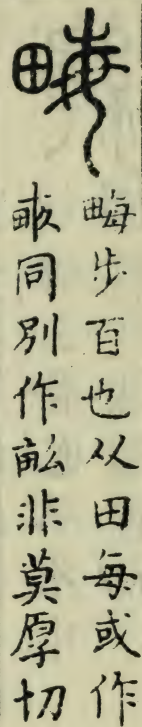 畮
畮步百也从田每或作
畞同別作畝非莫厚切